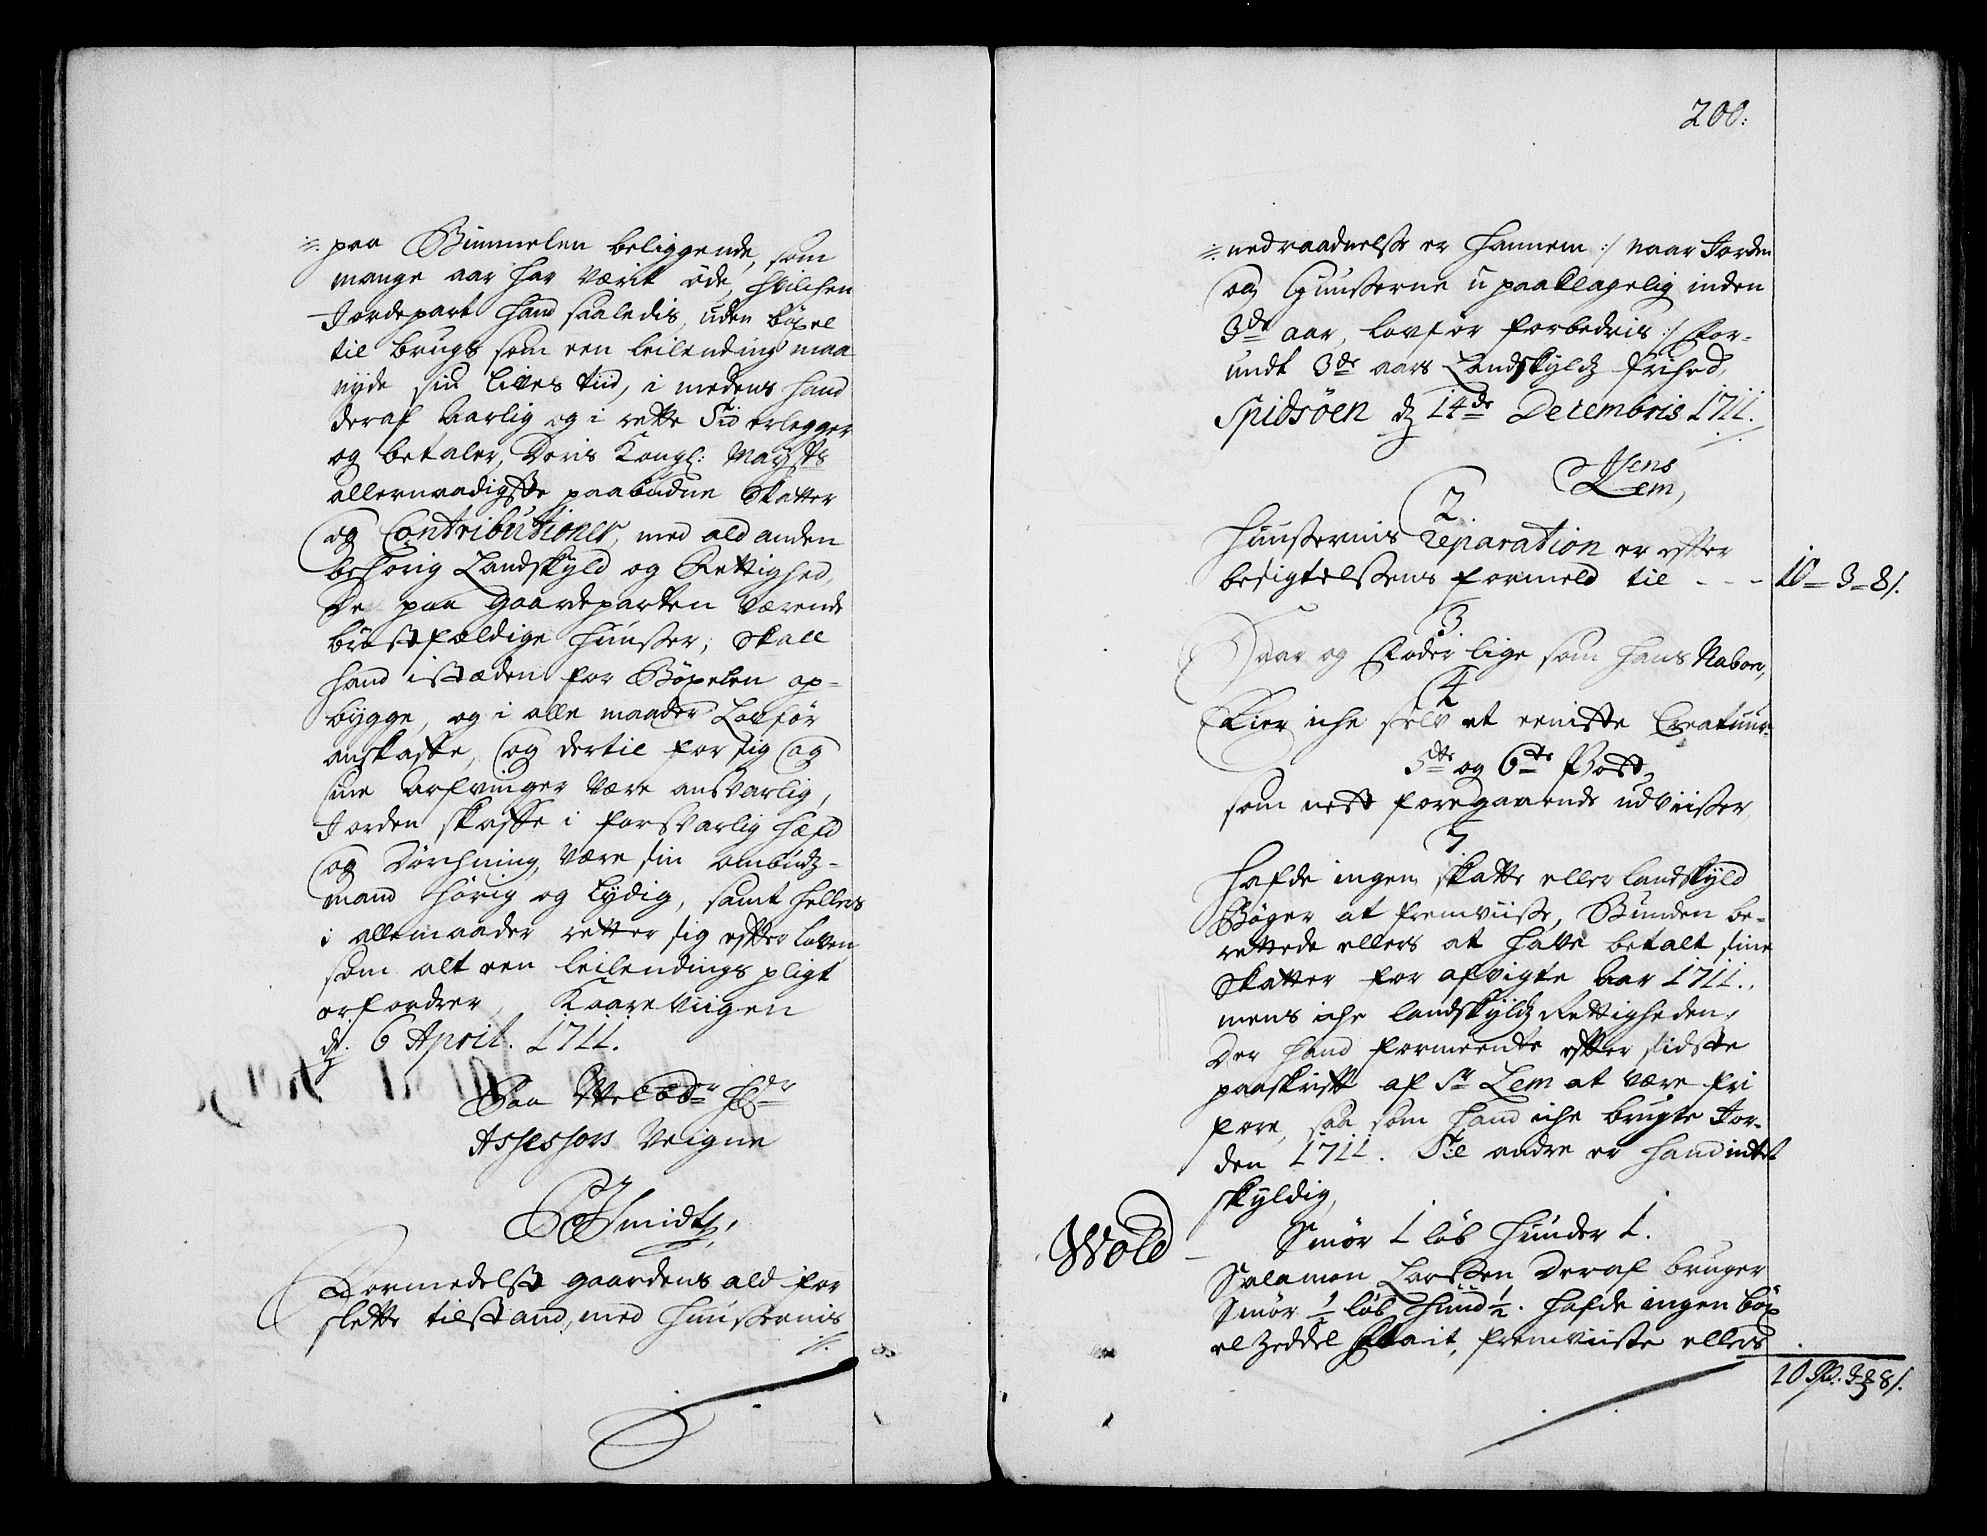 paa Bimmelen beliggende, som
mange aar har værit øde, hvilchen
Jordepart hand saaledis, uden böxel
til brugs som een leilending maa
nyde sin lives tid, i medens hand
deraf aarlig og i rette Tid erlegger
og betaler, Deris Kongl: Maysts
allernaadigste paabudne Skatter
og Contributioner, med ald anden
behörig Landskyld og Rettighed,
De paa gaardeparten værende
bröstfældige Huusser, skall
hand isteden for Böxelen op-
bygge, og i alle maader Lovför
anskaffe, og dertil for sig og
sine Arfvinger være ansvarlig,
Jorden skaffe i forsvarlig hæfd
og Dörchning, være sin ombudz-
mand hörig og lydig, samt hellers
i allemaader retter sig efter loven
som alt een leilendings pligt
erfordrer, Kaareviigen
d. 6 April. 1711.
Paa Welbdr Hr
Assessors Veigne
Smidt,
Formedelst gaardens ald for
slette tilstand, med Huussernis
200:
nedraadnelse er hannem :/ naar Jorden
og Huusserne upaaklagelig inden
3de aar, lovför forbedris :/ for-
undt 3de aars Landskyldz frihed,
Spidsöen d 14de Decembris 1711.
Jens
Lem,
2
Huussernis reparation er efter
besigtelssens formeld til - - - 10 - 3 - 8/.
3.
Saar og föder lige som hans Naboer,
4
Eier iche selv et eeniste Creatuur.
5te og 6te Post,
som nest foregaaende udviisser
7.
Hafde ingen skatte eller landskyld
Böger at fremviisse, Bunden be-
rettede ellers at have betalt sine
skatter for afvigte Aar 1711.,
mens iche landskyldz Rettigheden,
Der hand formeente efter sidste
paaskrift af Sr Lem at være fri
fore, saa som hand iche brugte Jor-
den 1711. Til andre er hand intet
skyldig,
Wold - Smör 1 löb Huuder 1.
Salamon Larssen Deraf bruger
Smör ½ löb Huud ½. Hafde ingen böx
el zeddel, fremviiste ellers
10 3 8/.